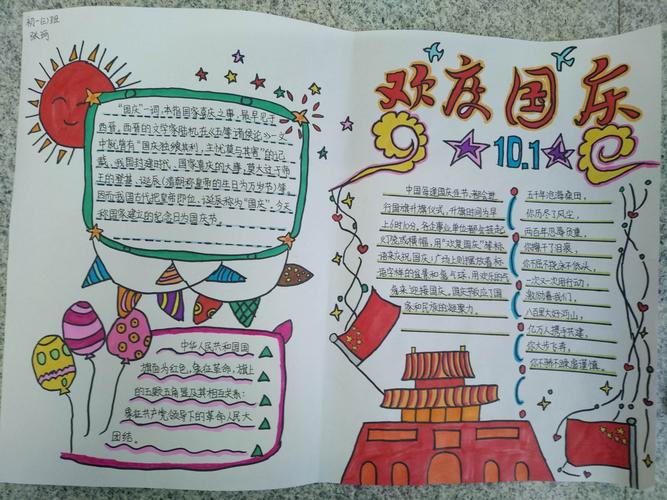 初一(3)班
张珂
"国庆"一词,本指国家喜庆之事,最早见于
西晋。西晋的文学家陆机在《五等诸侯论》一文
中就曾有"国庆独飨其利,主忧莫与其害"的记
载、我国封建时代、国家喜庆的大事,莫大过于帝
王的登基、诞辰(清朝称皇帝的生日为万岁节)等。
因而我国古代把皇帝即位、诞辰称为"国庆"。今天
称国家建立的纪念日为国庆节。
中华人民共和国国
旗面为红色,象征革命,旗上
的五颗五角星及其相互关系:
象征共产党领导下的革命人民大
团结。
欢度国庆
10.1
中国每逢国庆佳节,都会举
行国旗升旗仪式,升旗时间为早
上6时10分,各企事业单位都会挂起
灯笼或横幅,用"欢度国庆"等标
语来庆祝国庆。广场上则摆放着标
语字样的盆景和氢气球,用欢乐的气
氛来迎接国庆。国庆节放立了国
家和民族的凝聚力。
五千年沧海桑田,
你历尽了风尘,
两百年忍辱负重,
你撑下了日来,
你不屈不挠永不低头,
一次又一次用行动,
激励着我们,
八百里大好河山,
亿万人携手共建,
你大步飞奔,
你不骄不躁虚谨慎。